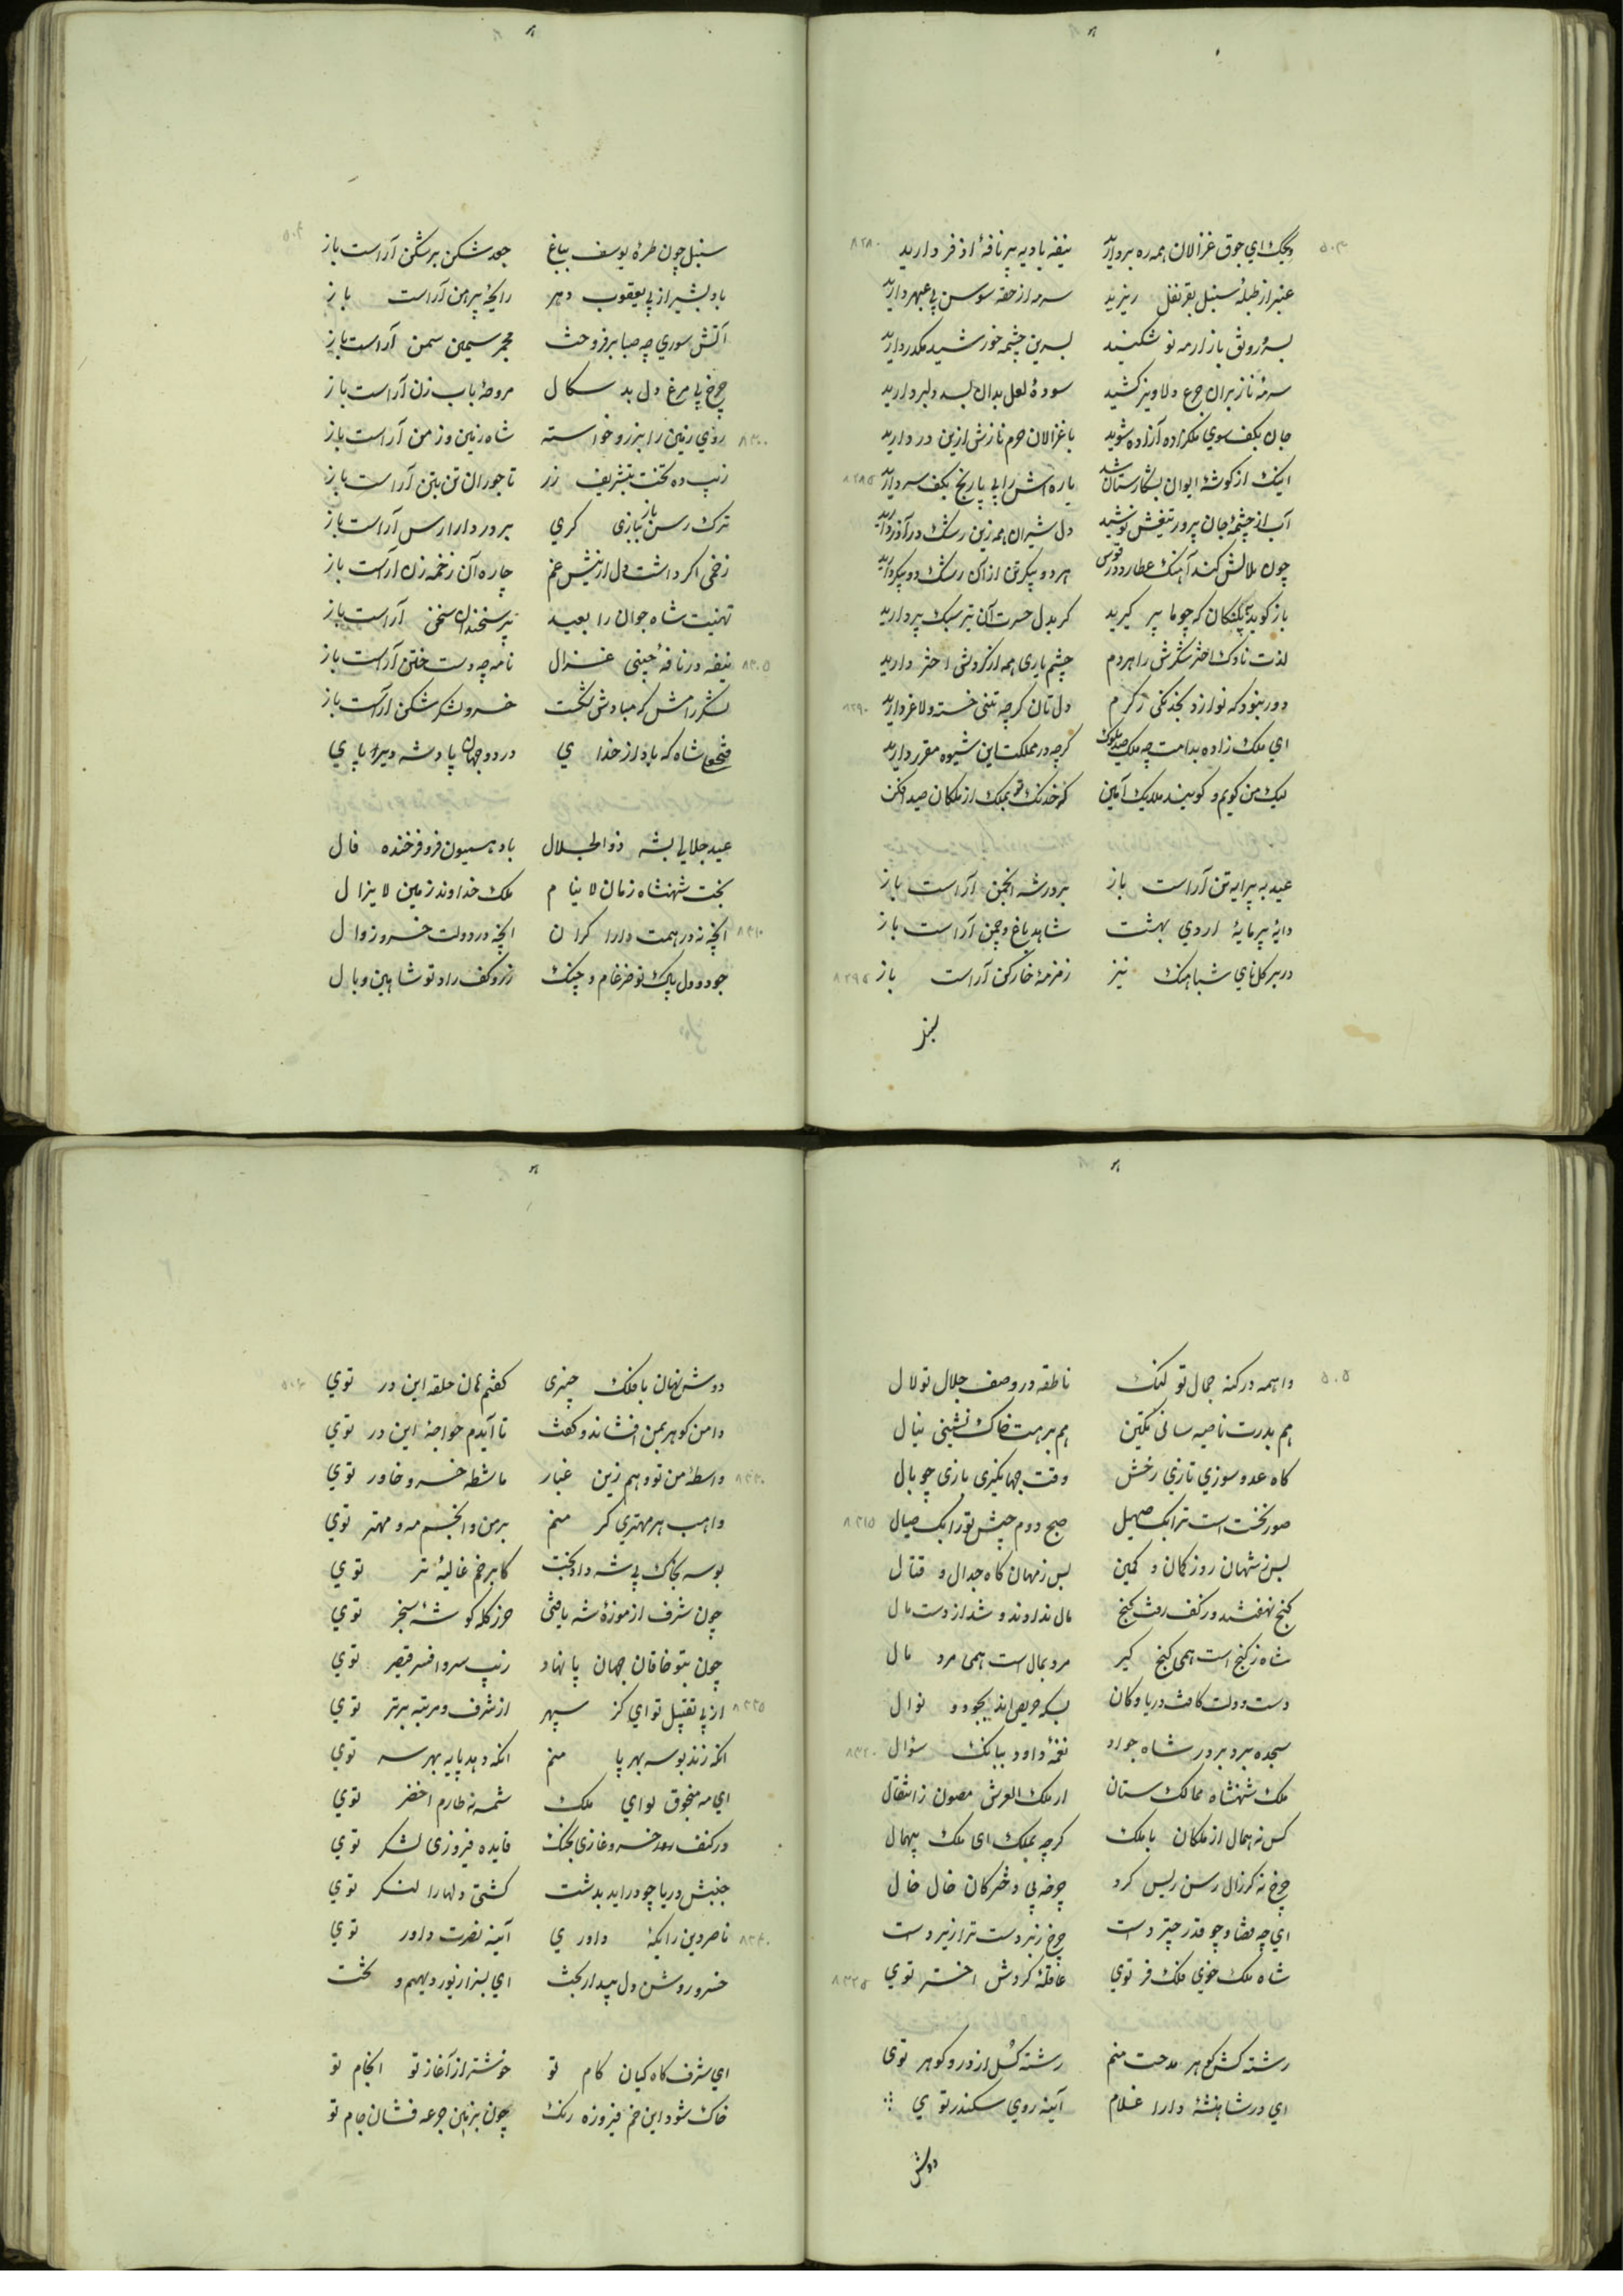 ای جوق غزالان همه ره بردارید نیفه بادیه پر نافهٔ اذفر دارید
عنبر از طبلهٔ سنبل بقرنفل ریزید سرمه از حقه سوسن پی عبهر دارید
رونق بازار مه نو شکنید چشمه خورشید مکدر دارید
سرمهٔ ناز بران جزع دلاویز کشید سودهٔ لعل بدان بسد دلبر دارید
جان بکف سوی ملکزاده آزاده شوید با غزالان حرم نازش ازین در دارید
اینک از گوشهٔ ایوان بشکارستان شد پاره اش را پی پا رنج بکف سر دارید
آب از چشمهٔ جان پرور تیغش نوشید دل شیران همه زین رشک در آذر دارید
چون بلالش کند آهنگ عطارد در قوس هر دو پیکر تن ازان رشک دو پیکر دارید
باز گوید که چو ما پر گیرید گر بدل حسرت آن تیر سبک پر دارید
لذت ناوک اختر شکرش را هر دم چشم یاری همه از گردش اختر دارید
دور نبود که نوازد بخدنگی ز کرم دلتان گرچه تنی خسته و لاغر دارید
ای ملک زاده بدامت چه ملک صید ملوک گرچه در مملکت این شیوه مقرر دارید
لیک من گویم و گویند ملایک آمین که خدنگ تو بملک از ملکان صید افکن
عید به پیرایه تن آراست باز بر در شه انجمن آراست باز
دایهٔ پر مایهٔ اردی بهشت شاهد باغ و چمن آراست باز
در بر گل نای شباهنگ نیز زمزمهٔ خارکن آراست باز
سنبل چون طرهٔ یوسف بباغ جعد شکن بر شکن آراست باز
باد بشیر از پی یعقوب دهر رایحهٔ پیرهن آراست باز
آتش سوری چه صبا بر فروخت مجمر سیمین سمن آراست باز
چرخ پی مرغ دل بد سگال مروحهٔ باب زن آراست باز
روی زمین را بزر و خواسته شاه زمین و زمن آراست باز
زیب ده تخت بتشریف زر تاجوران تن بتن آراست باز
ترک رسن باز ببازی گری بر در دارا رسن آراست باز
زخمی اگر داشت دل از نیش غم چاره آن زخمه زن آراست باز
تهنیت شاه جوان را بعید پیر سخندان سخن آراست باز
نیفه در نافهٔ چینی غزال نامه چه دست ختن آراست باز
لشکر رامش که مبادش شکست خسرو لشکر شکن آراست باز
فتحعلی شاه که باد از خدای در دو جهان پادشه دیر پای
عید جلالی بشه ذوالجلال باد همیون فر و فرخنده فال
بخت شهنشاه زمان لا ینام ملک خداوند زمین لا یزال
انچه نه در همت دارا کران انچه نه در دولت خسرو زوال
جود و دل پاک تو ضرغام و چنگ زر و کف راد تو شاهین و بال
واهمه در کنه جمال تو لنگ ناطقه در وصف جلال تو لال
هم بدرت ناصیه سائی تکین هم برهت خاک نشینی نیال
گاه عدو سوزی تازی رخش وقت جهانگیری بازی چو بال
صور نخست است ترا یک صهیل صبح دوم جیش تو را یک خیال
بس ز شهان روز کمان و کمین بس ز مهان گاه جدال و قتال
گنج نهفتند و در کف رفت گنج مال نداوند و شد از دست مال
شاه ز گنج است همی گنج گیر مرد بمال است همی مرد مال
دست و دلت کافت دریا و کان بسکه حریص اند بجود و نوال
سجده برد بر در شاه جواد نغمهٔ داود ببانگ سؤال
ملک شهنشاه ممالک ستان از ملک العرش مصون ز انتقال
کس نه همال از ملکان با ملک گرچه بملک ای ملک بیهمال
چرخ نه گر زال رسن ریس کرد چرخه پی دخترکان خال خال
ای چه قضا و چو قدر چیر دست چرخ زبردست ترا زیر دست
شاه ملک خوی فلک فر توی عاقلهٔ گردش اختر توی
رشته کش گوهر مدحت منم رشته گسل از در و گوهر توی
ای در شاهنشهٔ دارا غلام آینهٔ روی سکندر توی
دوش
دوش نهان با فلک چنبری گفتم هان حلقه این در توی
دامن گوهر بمن افشاند و گفت تا آیدم خواجهٔ این در توی
واسطهٔ من تو و هم زین غبار ماشطه خسرو خاور توی
واهب هر مهتری گر منم بر من و انجم مه و مهتر توی
بوسه بخاک پی شه داد بخت کابر خم غالیهٔ تر توی
چون شرف از موزهٔ شه یافتی حرز کله گوشهٔ سنجر توی
چون بتو خاقان جهان پا نهاد زیب سر و افسر قیصر توی
از پی تقبیل تو ای کز سپهر از شرف و مرتبه برتر توی
انکه زند بوسه بهر پا منم انکه دهد پایه بهر سر توی
ای مه منجوق لوای ملک شمسه نه طارم اخضر توی
در کنف رعد خسرو غازی بجنگ فایده فیروزی لشکر توی
جنبش دریا چو در اید بدشت کشتی دلها را لنگر توی
ناصر دین را بکهٔ داوری آینه نصرت داور توی
خسرو روشن دل بیدار بخت ای بسزا زیور دیهیم و تخت
ای شرف گاه کیان کام تو خوشتر از آغاز تو انجام تو
خاک شود این خم فیروزه رنگ چون بزمین جرعه فشان جام تو